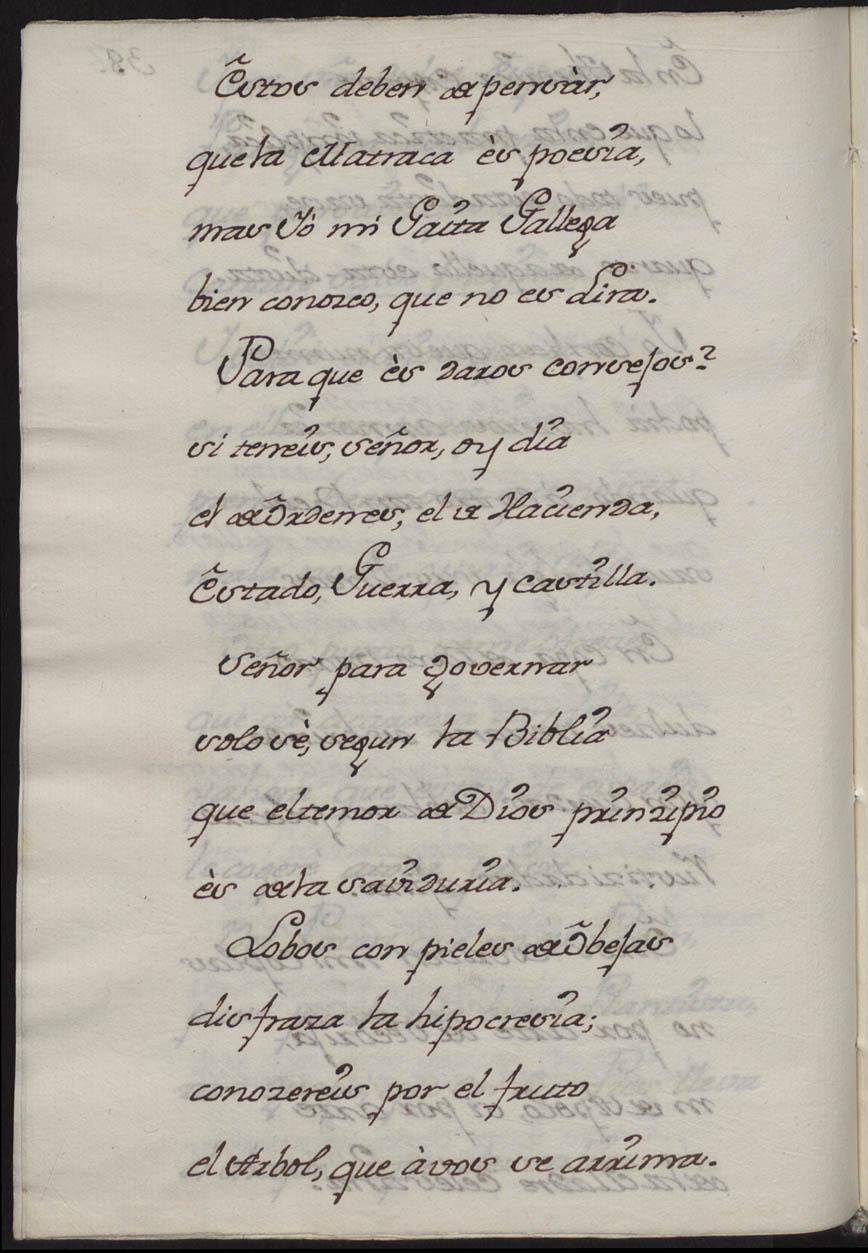 Estos deben de pensàr,
que la Matraca ès poesia,
mas Yó mi Gaita Gallega
bien conozco, que no es Lira.
Para que ès daros consejos?
si teneis, señor, oy dia
el de Ordenes, el de Hacienda,
Estado, Guerra, y Castilla.
Señor para governar
solo sè, segun la Biblia
que el temor de Dios prinzipio
ès de la saviduria.
Lobos con pieles de Obejas
disfraza la hipocresia;
conozereis por el fruto
el Arbol, que à vos se arrima.